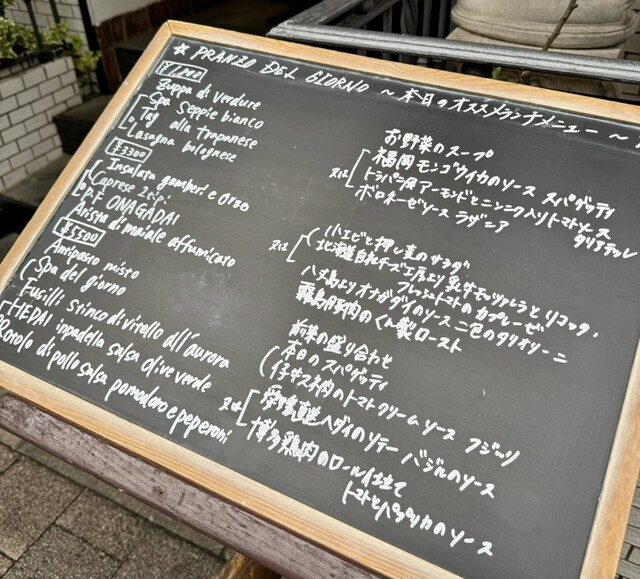 ★ PRANZO DEL GIORNO ~ 本日のオススメランチメニュー ~
Zuppa di verdure
Spa Seppie bianco
o. Tag alla trapanese
Lasagna bolognese
¥3300
Insalata gamberi e orso
o. Caprese 2tipi
P.F ONAGADAI
Arista di maiale affumicato
¥5500
Antipasto misto
Spa del giorno
Fusilli Stinco di vitello all'aurora
HEDAI inpadella salsa olive verde
Rotolo di pollo salsa pomodoro e peperoni
お野菜のスープ
又は
福岡モンゴウイカのソース スパゲッティ
トラパニ風アーモンドとニンニク入りトマトソース
タリアテッレ
ボロネーゼソース ラザニア
又は
エビと押し麦のサラダ
北海道白糠チーズ工房より乳牛モッツァレラとリコッタ・
フレッシュトマトのカプレーゼ
八丈島よりオナガダイのソース 二色のタリオリーニ
豚肉のくん製ロースト
前菜の盛り合わせ
本日のスパゲッティ
仔牛スネ肉のトマトクリームソース フジッリ
又は
直送ヘダイのソテー バジルのソース
博多鶏肉のロール仕立て
トマトとパプリカのソース